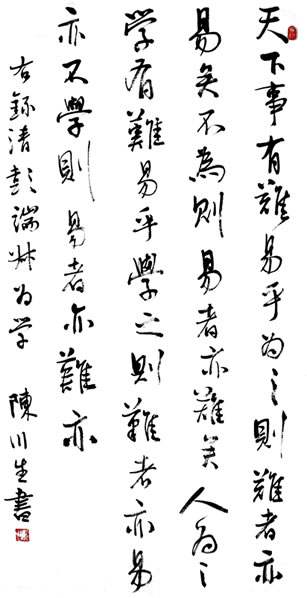 天下事有難易乎為之則難者亦
易矣不為則易者亦難矣人為之
學有難易乎學之則難者亦易
亦不學則易者亦難亦
右錄清彭端淑为学 陳川生書